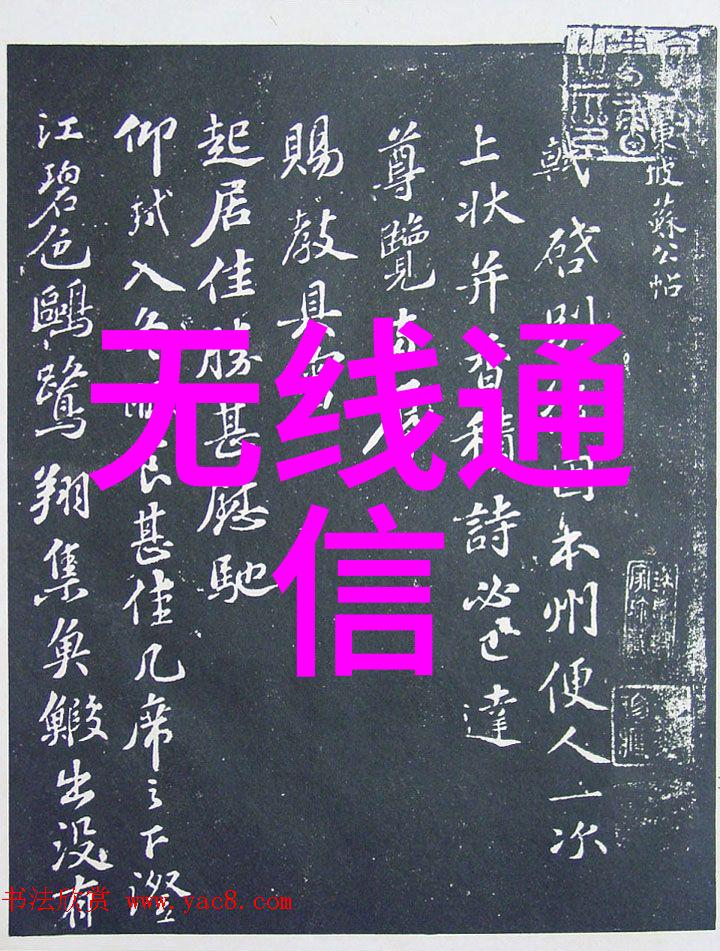 東坡蘇公帖
軾啓別因本州便人一次
上狀并香積詩必已達
尊覽
賜教具審
起居佳勝甚慰馳
仰軾入冬眠食甚佳几席之下澄
江碧色鷗鷺翔集魚鰕出没有
无线通
信
书法欣赏 www.yac8.com